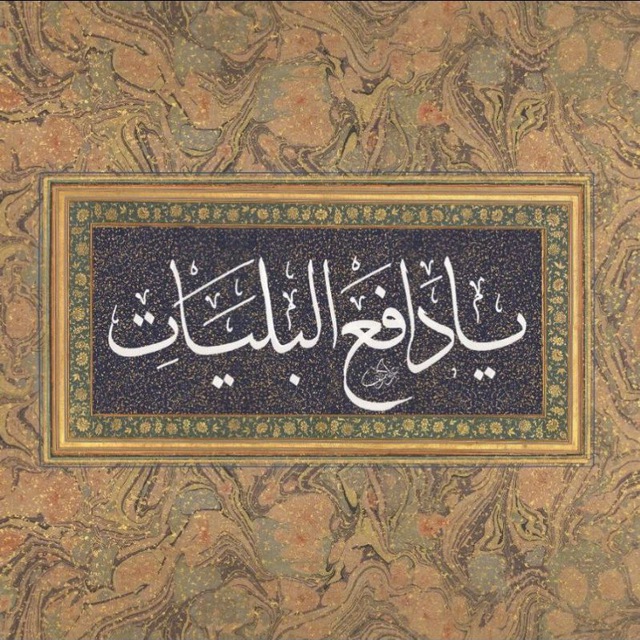 يَا دَافِعَ الْبَلِيَّاتِ